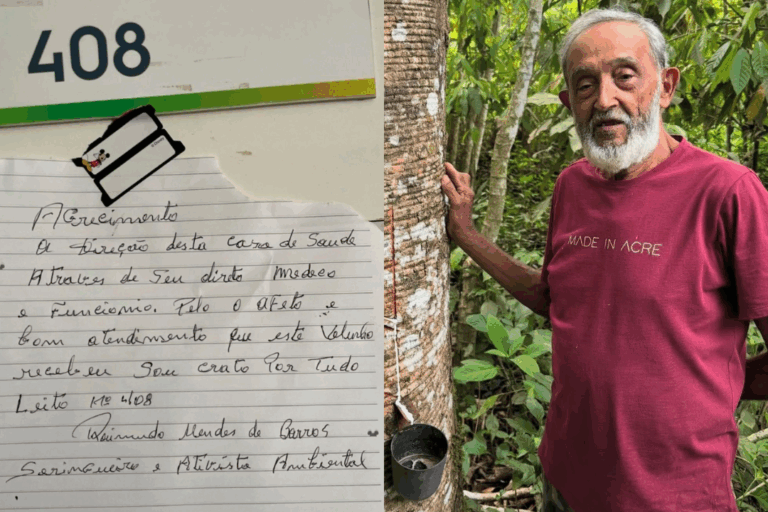 408
Agrecimento
A direção desta casa de Saude
Atraves de seu direto medeco
e Funcionio. Pelo o afeto e
bom atendimento que este Velinho
recebeu Sou crato Por Tudo
Leito Nº 408
Raimundo Mendes de Barros
Seringueiro e Ativista Ambiental
MADE IN ACRE